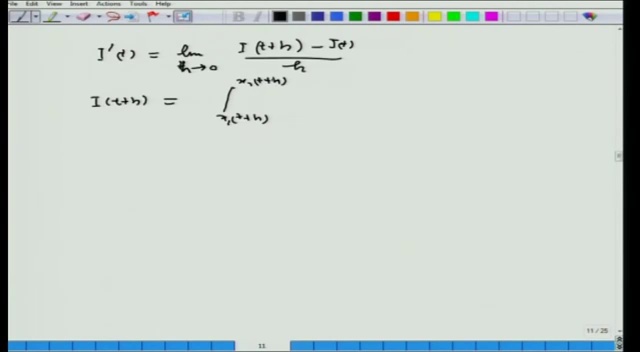 File Edit View Insert Actions Tools Help
I'(t) = lim h→0 I(t+h) − I(t) / h
I(t+h) = ∫ x₂(t+h) x₁(t+h)
11 / 25
11